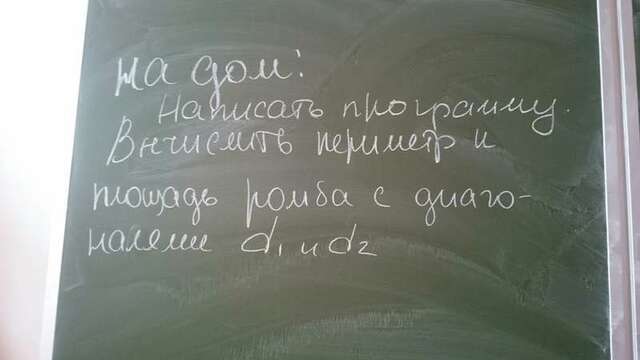 на дом:
Написать программу.
Вычислить периметр и
площадь ромба с диаго-
налями d1 и d2